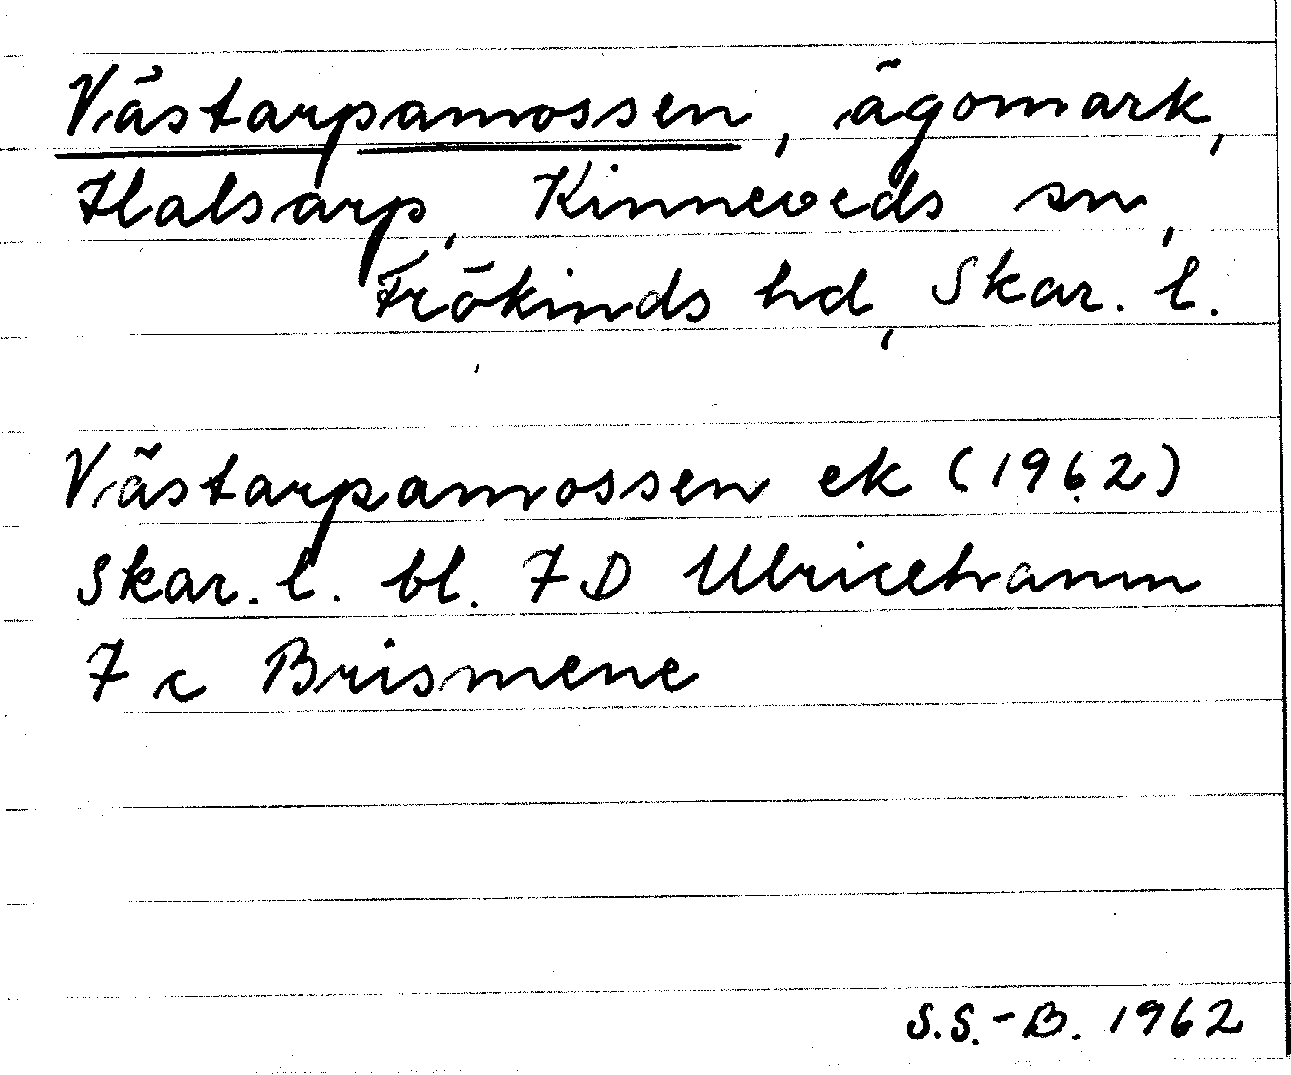 Västarpamossen, ägomark,
Halsarp, Kinneveds sn,
Frökinds hd, Skar. l.
Västarpamossen ek (1962)
Skar. l. bl. 7 D Ulricehamn
7 c Brismene
S.S.-B. 1962